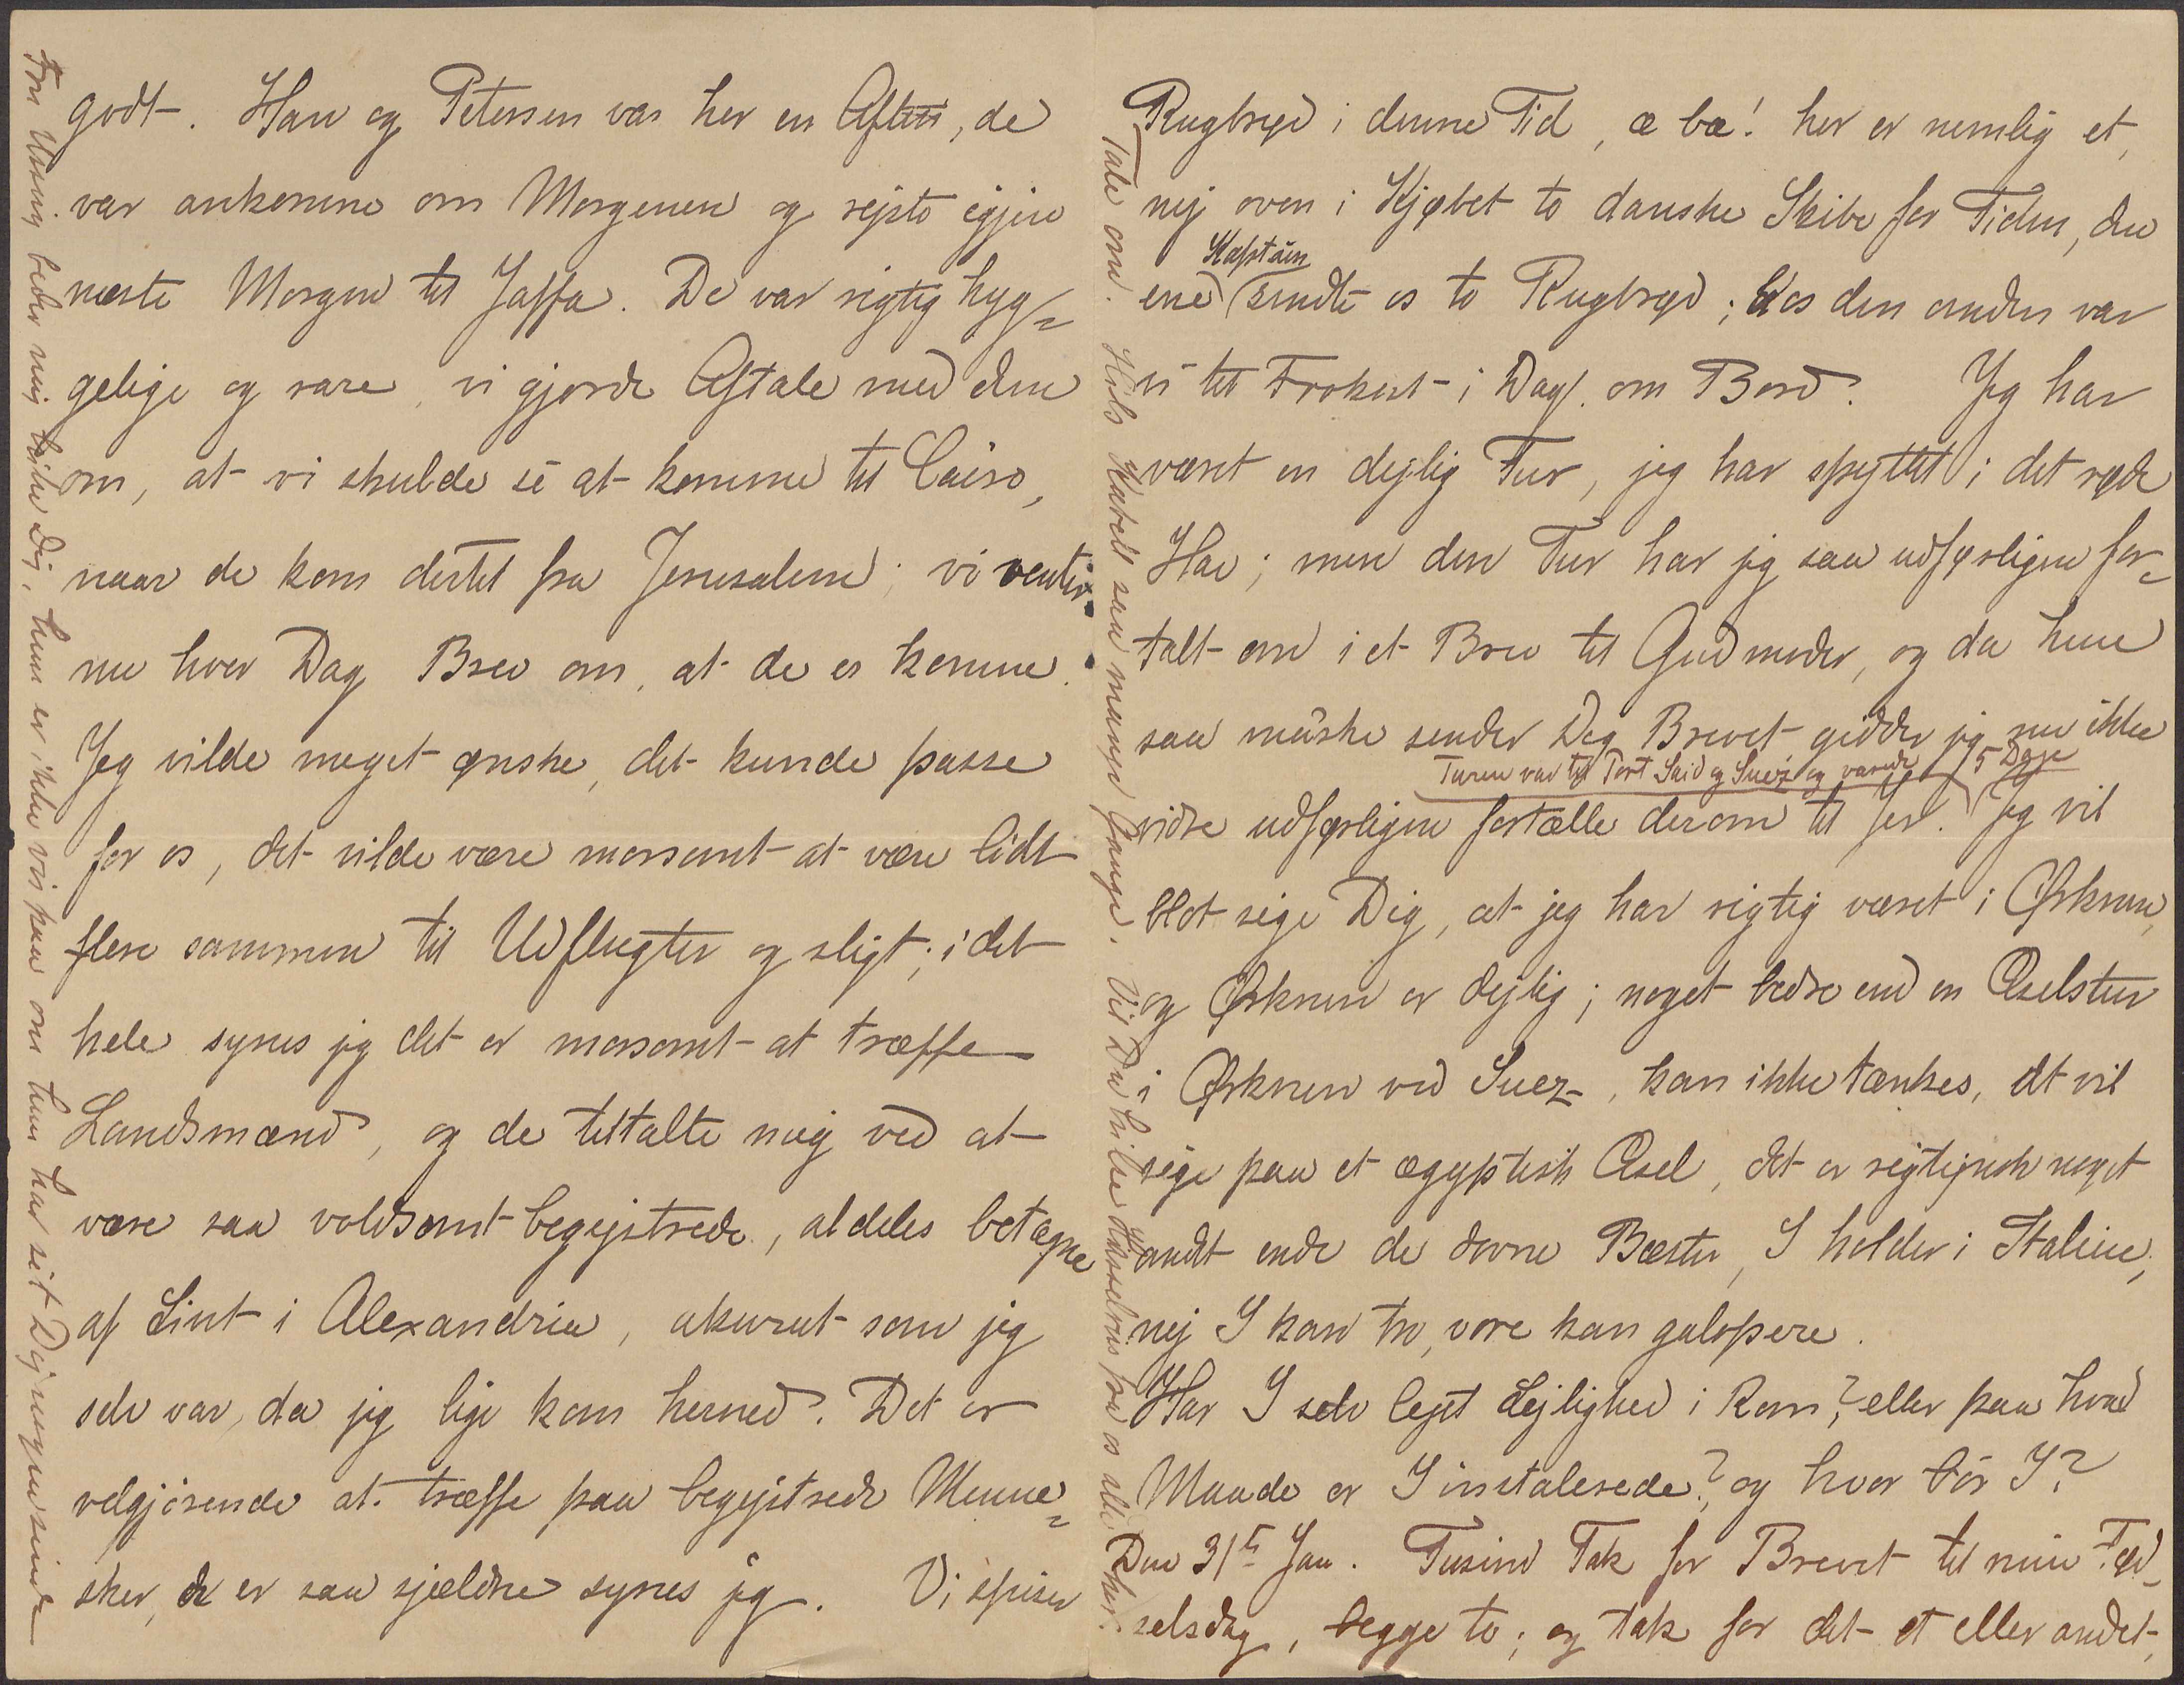 godt. Han og Petersen var her en Aften, de
var ankomne om Morgenen og rejste igjen
næste Morgen til Jaffa. De var rigtig hyg=
gelige og rare, vi gjorde Aftale med dem
om, at vi skulde se at komme til Cairo,
naar de kom dertil fra Jerusalem; vi venter
nu hver Dag Brev om, at de er komne.
Jeg vilde meget ønske, det kunde passe
for os, det vilde være morsomt at være lidt
flere sammen til Udflugter og sligt; i det
hele synes jeg det er morsomt at træffe
Landsmænd, og de tiltalte mig ved at
være saa voldsomt begejstrede, aldeles betagne
af Livet i Alexandria, akurat som jeg
selv var, da jeg lige kom herned. Det er
velgjørende at træffe paa begejstrede Menne=
sker, de er saa sjældne synes jeg. Vi spiser
Fru Ussing beder mig hilse Dig, hun er ikke vis paa om hun har set Dig nogensinde
Rugbrød i denne Tid, æ bæ! her er nemlig et,
nej oven i Kjøbet to danske Skibe for Tiden, den
ene Kaptain sendte os to Rugbrød; hos den anden var
vi til Frokost i Dag om Bord. Jeg har
været en dejlig Tur, jeg har spyttet i det røde
Hav; men den Tur har jeg saa udførligen for=
talt om i et Brev til Gudmoder, og da hun
saa måske sender Dig Brevet, gidder jeg nu ikke
Turen var til Port Said og Suez og varede 5 Dage
vidre udførligen fortælle derom til Jer. Jeg vil
blot sige Dig, at jeg har rigtig været i Ørkenen,
og Ørkenen er dejlig; noget bedre end en Æselstur
i Ørkenen ved Suez, kan ikke tænkes, det vil
sige paa et ægyptisk Æsel, det er rigtignok noget
andt ende de dovne Bæster, I holder i Italien,
nej I kan tro, vore kan galopere.
Har I selv lejet Lejlighed i Rom? eller paa hvad
Maade er I instalerede? og hvor bor I?
Den 31te Jan. Tusind Tak for Brevet til min Fød=
selsdag, begge to; og tak for det et eller andet,
Tale om. Hils saa mange Gange. Vil Du hilse fra os alle her.